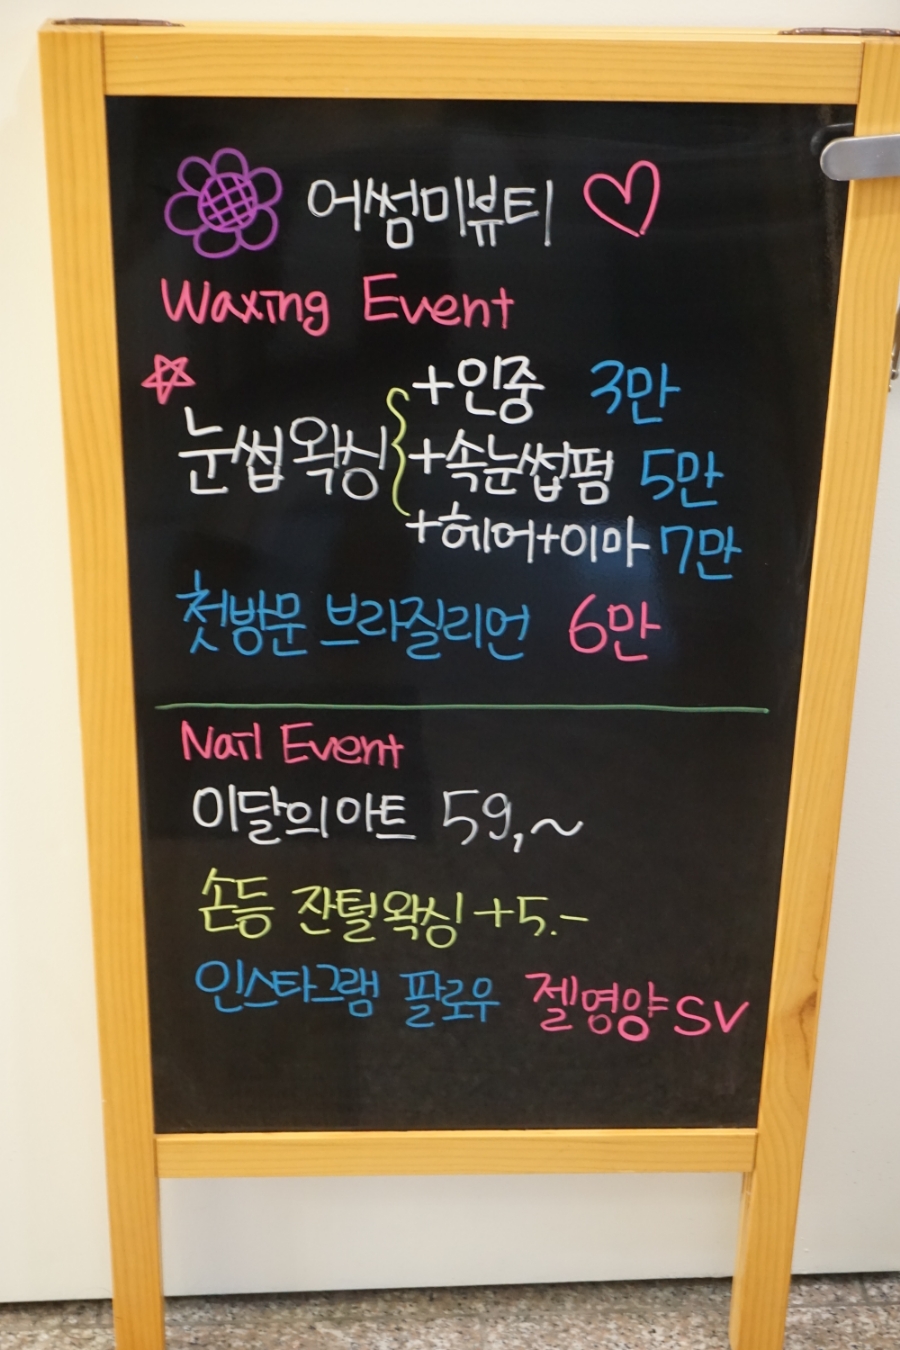 어썸미뷰티
Waxing Event
눈썹왁싱
+인중 3만
+속눈썹펌 5만
+헤어+이마 7만
첫방문 브라질리언 6만
Nail Event
이달의아트 59,~
손등 잔털왁싱 +5.-
인스타그램 팔로우 젤영양SV